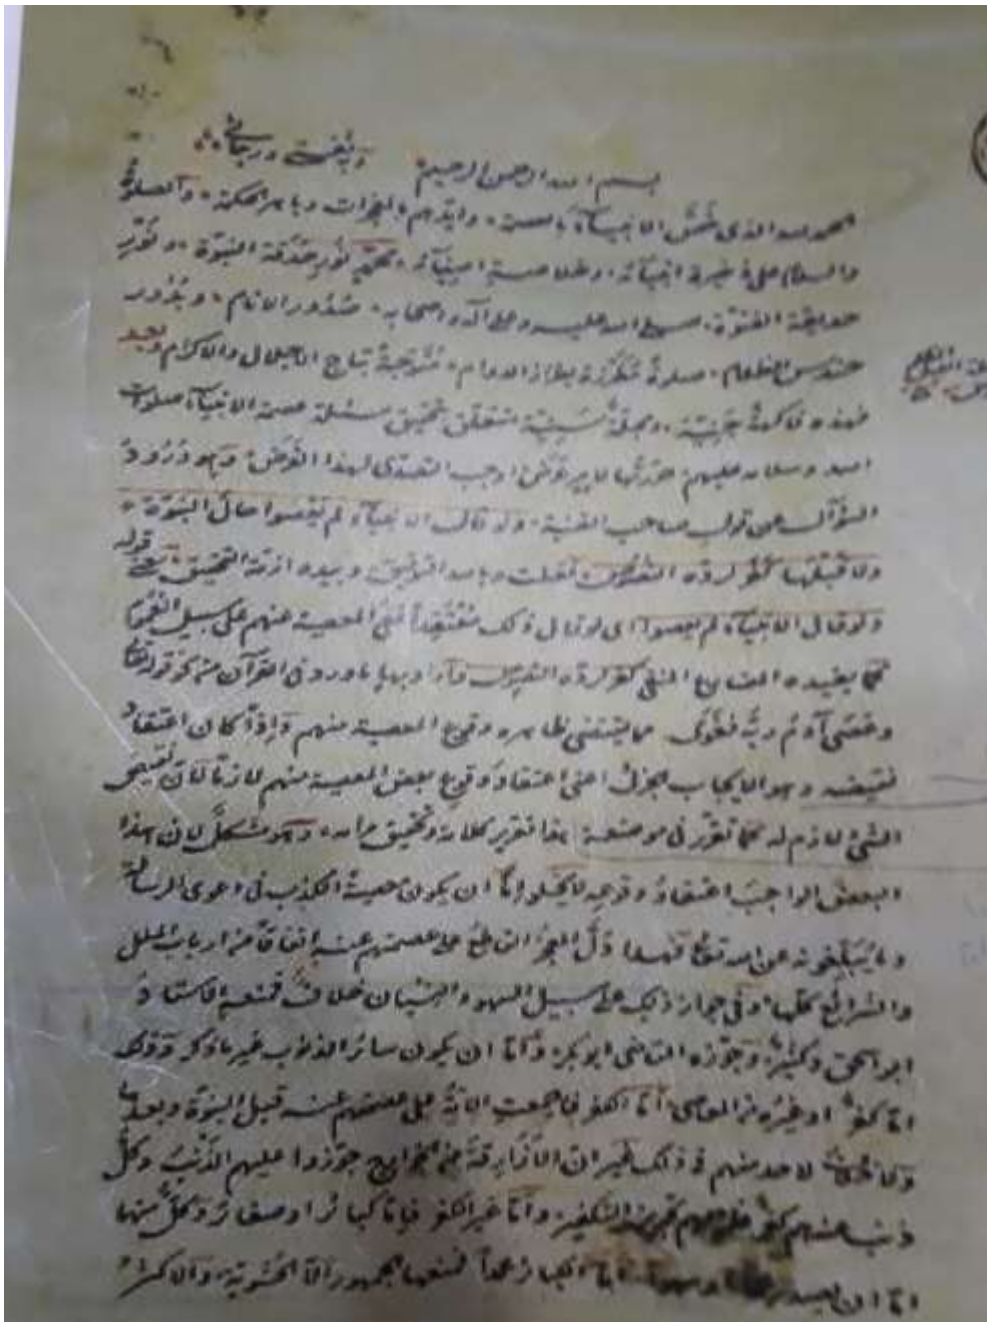 بسم الله الرحمن الرحيم وبه ثقتي
الحمد لله الذى خصّ الانبيآء بالعصمة وايّدهم بالمعجزات وباهر الحكمة والصلوة
والسلام على خيرة انبيآئه وخلاصة اصفيآئه محمّد نور حدقة النبوّة ونَور
حديقة الفتوّة صلى الله عليه وعلى آله واصحابه صُدُور الانام وبُدُور
حندس الظلام صلوة مُطَرَّزة بطراز الدوام مُتَوَّجة بتاج الاجلال والاكرام وبعد
فهذه فاكهة جنيّة سَنِيّة تتعلق بتحقيق مسئلة عصمة الانبيآء صلوات
الله وسلامه عليهم حرّرتُها اوجب التصدّى لهذا الغرض وهو وُرُودُ
السؤال عن قول صاحب القنية ولو قال الانبيآء لم يعصوا حال النبوّة
ولا قبلَها كفر لردّه النصوص فقلت وبالله التوفيق وبيده ازمّة التحقيق قوله
ولو قال الانبيآء لم يعصوا اى لو قال ذلك مُعتقِداً نفىَ المعصية عنهم على سبيل العموم
كما يفيده المضارع المنفى كفر لردّه النصوص واراد بها ما ورد فى القرآن من نحو قوله تعالى
وعَصَى آدم ربَّه فغَوَى مما يقتضى ظاهره وقوع المعصية منهم وإذاً كان اعتقادُ
نقيضه وهو الايجاب الجزئ اعنى اعتقاد وقوع بعض المعصية منهم لازماً لانّ نقيض
الشئ لازم له كما تقرّر فى موضعه هذا تقرير كلامه وتحقيق مرامه وهو مشكل لان هذا
البعض الواجبَ اعتقادُ وقوعِه لا يخلو امّا ان يكون معصيةُ الكذب فى دعوى الرسالة
وما يُبَلّغونه عن الله تعالى فهذا دلَّ المعجز القاطع على عصمتهم عنه اتفاقاً من ارباب الملل
والشرايع كلّها وفى جواز ذلك على سبيل السهو والنسيان خلافٌ فمنعه الاستاذُ
ابو اسحق وكثيرٌ وجوّزه القاضى ابو بكر وامّا ان يكون سائر الذنوب غير ما ذكر وذلك
امّا كفرٌ او غيرُه من المعاصى امّا الكفر فاجمعت الامّة على عصمتهم عنه قبل النبوّة وبعدها
ولا خلاف لاحد منهم فى ذلك غير ان الازارقة من الخوارج جوّزوا عليهم الذنْبَ وكلُّ
ذنب عندهم كفر وامّا غير الكفر فامّا كبائر او صغائر وكلٌّ منها
امّا ان امّا الكبائر عمداً فمنعها الجمهور الّا الحشوية والاكثرُ